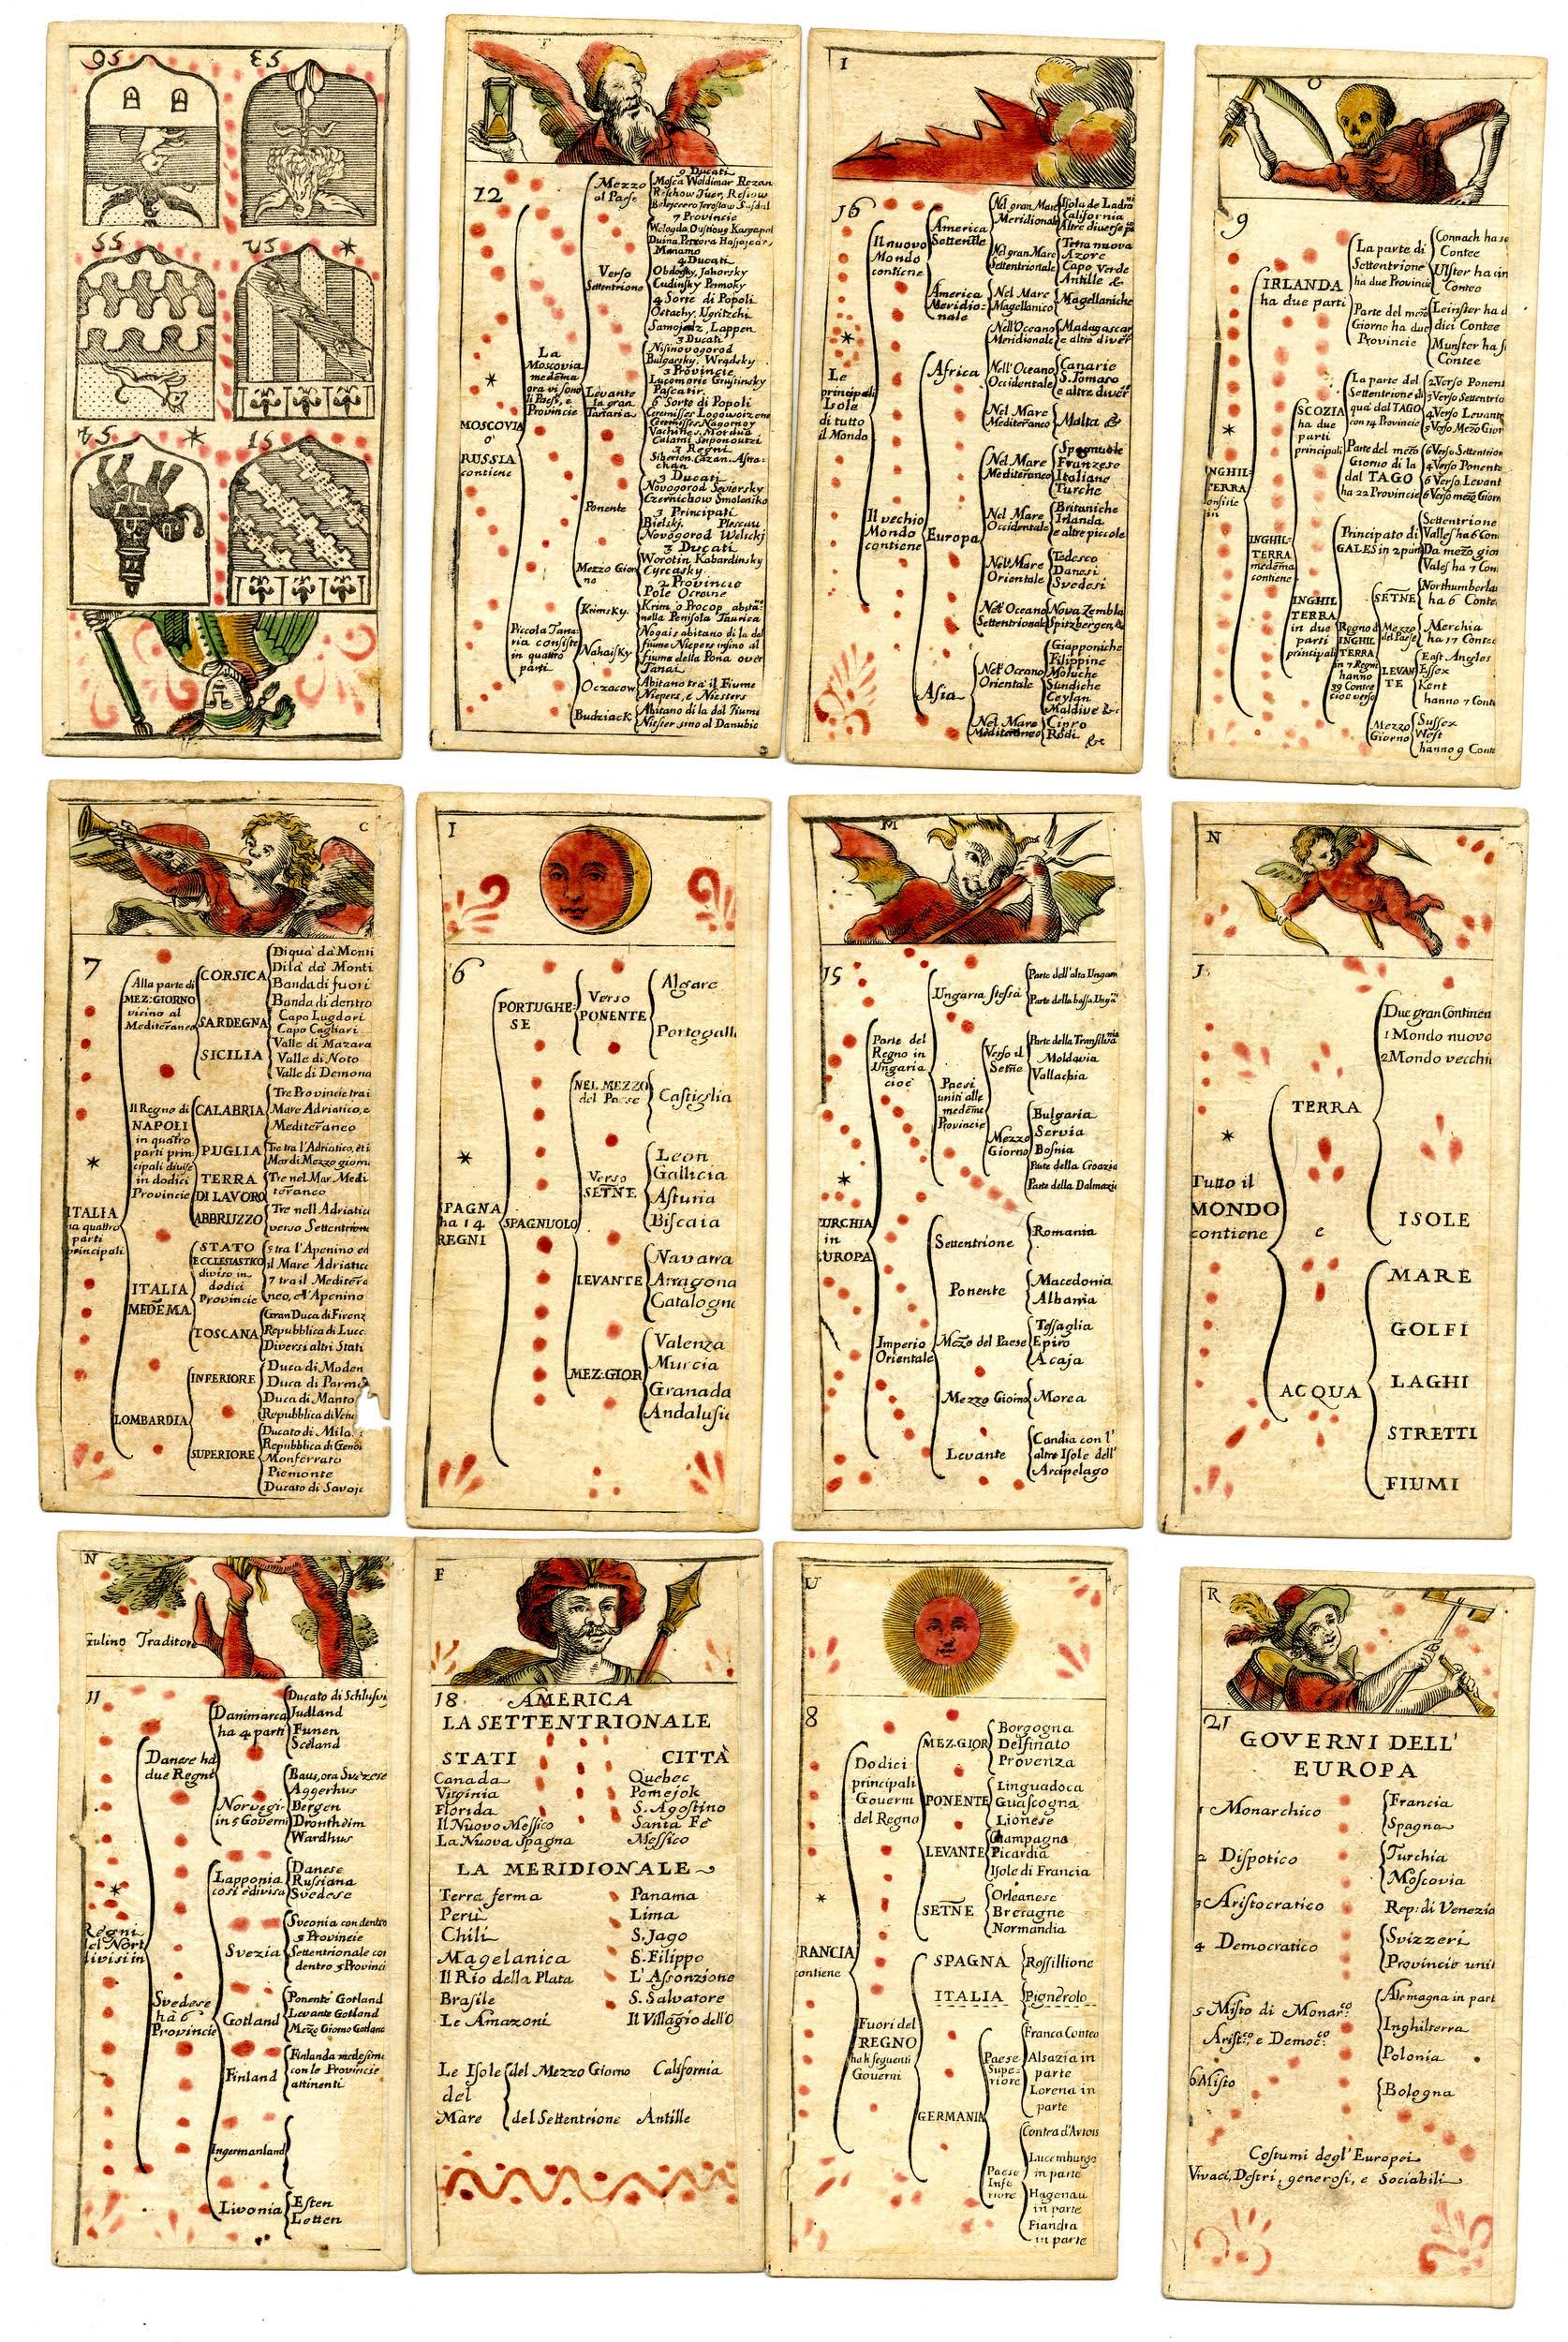 56
53
55
52
54
51
12
MOSCOVIA
o'
RUSSIA
contiene
La
Moscovia
medema
ora vi sono
li Paesi, e
Provincie
Mezzo
al Paese
9 Ducati
Mosca Woldimar Rezan
7 Provincie
Verso
Settentrione
4 Ducati
Obdorsky, Jahorsky
4 Sorte di Popoli
Ostachy, Ugritzchi
Samojedz, Lappen
Levante
la gran
Tartaria
3 Ducati
Nisinovogorod
3 Provincie
6 Sorte di Popoli
3 Regni
Ponente
3 Ducati
Novogorod Seviersky
Czernichow Smolensko
3 Principati
Bielskj Plescau
Novogorod Welickj
Mezzo Gior
no
3 Ducati
Worotin Kabardinsky
Cyrcasky
2 Provincie
Pole Ocraine
Piccola Tarta
ria consiste
in quattro
parti
Krimsky
Krim o Procop abita
nella Penisola Taurica
Nahaisky
Nogais abitano di la dal
fiume Niepers insino al
fiume della Pona over
Tanai
Oczacow
Abitano tra il Fiume
Niepers, e Niesters
Budziack
Abitano di la dal Fiume
Niester sino al Danubio
I
16
Le
principali
Isole
di tutto
il Mondo
Il nuovo
Mondo
contiene
America
Settentle
Nel gran Mare
Meridionale
Isola de Ladro
California
Altre diverse
Nel gran Mare
Settentrionale
Terra nuova
Azore
Capo Verde
Antille &
America
Meridio:
nale
Nel Mare
Magellanico
Magellaniche
Il vechio
Mondo
contiene
Africa
Nell'Oceano
Meridionale
Madagascar
e altre diver
Nell'Oceano
Occidentale
Canarie
S. Tomaso
e altre diver
Nel Mare
Mediteraneo
Malta &
Europa
Nel Mare
Mediteraneo
Spagnuole
Franzese
Italiane
Turche
Nel Mare
Occidentale
Britaniche
Irlanda
e altre piccole
Nel Mare
Orientale
Tedesco
Danesi
Svedesi
Nel Oceano
Settentrional
Nova Zembla
Spitzbergen, &
Asia
Nel Oceano
Orientale
Giapponiche
Filippine
Moluche
Sundiche
Ceylan
Maldive &c
Nel Mare
Mediteraneo
Cipro
Rodi &c
9
INGHIL:
TERRA
consiste
in
IRLANDA
ha due parti
La parte di
Settentrione
ha due Provincie
Connach ha se
Contee
Ulster ha in
Contee
Parte del mezo
Giorno ha due
Provincie
Leinster ha d
dici Contee
Munster ha s
Contee
INGHIL:
TERRA
medema
contiene
SCOZIA
ha due
parti
principali
La parte del
Settentrione di
qua dal TAGO
con 14 Provincie
2 Verso Ponent
3 Verso Settentrio
4 Verso Levante
5 Verso Mezo Gior
Parte del mezo
Giorno di la
dal TAGO
ha 22 Provincie
6 Verso Settentrion
4 Verso Ponente
6 Verso Levant
6 Verso mezo Giorn
INGHIL
TERRA
in due
parti
principali
Principato di
GALES in 2 parti
Settentrione
Valles ha 6 Con
Da mezo gior
Vales ha 7 Con
Regno d'
INGHIL
TERRA
in 7 Regni
hanno
39 Contee
cioe verso
SETNE
Northumberla
ha 6 Conte
Mezzo
del Paese
Merchia
ha 17 Contee
LEVAN
TE
East Angles
Essex
Kent
hanno 7 Cont
Mezzo
Giorno
Sussex
West
hanno 9 Cont
C
7
ITALIA
ha quattro
parti
principali
Alla parte di
MEZ:GIORNO
vicino al
Mediteraneo
CORSICA
Di qua da Monti
Di la da Monti
Banda di fuori
Banda di dentro
SARDEGNA
Capo Lugdori
Capo Cagliari
SICILIA
Valle di Mazara
Valle di Noto
Valle di Demona
Il Regno di
NAPOLI
in quattro
parti prin
cipali divise
in dodici
Provincie
CALABRIA
Tre Provincie tra i
Mare Adriatico, e
Mediteraneo
PUGLIA
Tre tra l'Adriatico, et i
Mar di Mezzo giorn
TERRA
DI LAVORO
Tre nel Mar Medi
teraneo
ABBRUZZO
Tre nell Adriatic
verso Settentrion
ITALIA
MEDEMA
STATO
ECCLESIASTICO
diviso in
dodici
Provincie
5 tra l'Apenino ed
il Mare Adriatico
7 tra il Meditera
neo, e l'Apenino
TOSCANA
Gran Duca di Firenz
Repubblica di Lucc
Diversi altri Stati
LOMBARDIA
INFERIORE
Duca di Moden
Duca di Parma
Duca di Manto
Repubblica di Vene
SUPERIORE
Ducato di Mila
Repubblica di Geno
Monferrato
Piemonte
Ducato di Savoja
I
6
SPAGNA
ha 14
REGNI
PORTUGHE:
SE
Verso
PONENTE
Algare
Portogall
SPAGNUOLO
NEL MEZZO
del Paese
Castiglia
Verso
SETNE
Leon
Gallicia
Asturia
Biscaia
LEVANTE
Navarra
Arragona
Catalogna
MEZ:GIOR
Valenza
Murcia
Granada
Andalusia
M
15
TURCHIA
in
EUROPA
Parte del
Regno in
Ungaria
cioe
Ungaria stessa
Parte dell'alta Ungari
Parte della bassa Unga
Paesi
uniti alle
medeme
Provincie
Verso il
Setne
Parte della Transilva
Moldavia
Vallachia
Mezzo
Giorno
Bulgaria
Servia
Bosnia
Parte della Croazia
Parte della Dalmazia
Imperio
Orientale
Settentrione
Romania
Ponente
Macedonia
Albania
Mezo del Paese
Tessaglia
Epiro
Acaja
Mezzo Giorno
Morea
Levante
Candia con l'
altre Isole dell'
Arcipelago
N
1
Tutto il
MONDO
contiene
TERRA
Due gran Continen
1 Mondo nuovo
2 Mondo vecchi
e
ISOLE
ACQUA
MARE
GOLFI
LAGHI
STRETTI
FIUMI
N
Gulino Traditore
11
Regni
del Nort
divisi in
Danese ha
due Regni
Danimarca
ha 4 parti
Ducato di Schlusvi
Judland
Funen
Sceland
Norvegi
in 5 Governi
Baus, ora Svezese
Aggerhus
Bergen
Drontheim
Wardhus
Svedese
ha 6
Provincie
Lapponia
cosi è divisa
Danese
Russiana
Svedese
Svezia
Sveonia con dentro
5 Provincie
Settentrionale con
dentro 5 Provinci
Gotland
Ponente Gotland
Levante Gotland
Mezo Giorno Gotland
Finland
Finlanda medesima
con le Provincie
attinenti
Ingermanland
Livonia
Esten
Letten
F
18. AMERICA
LA SETTENTRIONALE
STATI CITTÀ
Canada Quebec
Virginia Pomejok
Florida S. Agostino
Il Nuovo Messico Santa Fè
La Nuova Spagna Messico
LA MERIDIONALE
Terra ferma Panama
Perù Lima
Chili S. Jago
Magelanica S. Filippo
Il Rio della Plata L'Assonzione
Brasile S. Salvatore
Le Amazoni Il Villagio dell'O
Le Isole del Mezzo Giorno California
del
Mare del Settentrione Antille
U
8
FRANCIA
contiene
Dodici
principali
Governi
del Regno
MEZ:GIOR
Borgogna
Delfinato
Provenza
PONENTE
Linguadoca
Guascogna
Lionese
LEVANTE
Champagna
Picardia
Isole di Francia
SETNE
Orleanese
Bretagne
Normandia
Fuori del
REGNO
ha li seguenti
Governi
SPAGNA
Rossillione
ITALIA
Pignerolo
GERMANIA
Paese
Supe:
riore
Franca Contea
Alsazia in
parte
Lorena in
parte
Paese
Infe
riore
Contea d'Artois
Lucemburgo
in parte
Hagenau
in parte
Fiandra
in parte
R
21
GOVERNI DELL'
EUROPA
1 Monarchico
Francia
Spagna
2 Dispotico
Turchia
Moscovia
3 Aristocratico
Rep: di Venezia
4 Democratico
Svizzeri
Provincie unit
5 Misto di Monar:co
Arist:co, e Democ:co
Alemagna in part
Inghilterra
Polonia
6 Misto
Bologna
Costumi degl' Europei
Vivaci, Destri, generosi, e Sociabili